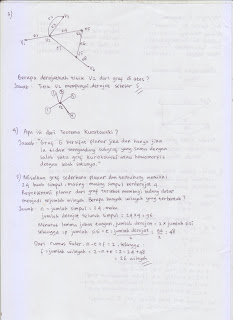 3)
Berapa derajatkah titik V2 dari graf di atas ?
Jawab : Titik V2 mempunyai derajat sebesar 5.
4) Apa isi dari Teorema Kuratowski ?
Jawab : "Graf G bersifat planar jika dan hanya jika
ia tidak mengandung subgraf yang sama dengan
salah satu graf kuratowski atau homeomorfik
dengan salah satunya."
5) Misalkan graf sederhana planar dan terhubung memiliki
24 buah simpul, masing-masing simpul berderajat 4.
Representasi planar dari graf tersebut membagi bidang datar
menjadi sejumlah wilayah. Berapa banyak wilayah yang terbentuk ?
Jawab : n = jumlah simpul = 24, maka
jumlah derajat seluruh simpul = 24 x 4 = 96
Menurut lemma jabat tangan, jumlah derajat = 2 x jumlah sisi
sehingga jumlah sisi = e = jumlah derajat / 2 = 96/2 = 48
Dari rumus Euler, n - e + f = 2, sehingga
f = 2 - n + e = 2 - 24 + 48
= 26 wilayah